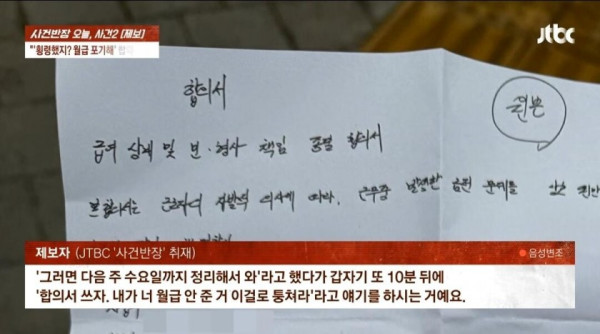 사건반장 오늘, 사건2 [제보]
"'횡령했지? 월급 포기해'
jtbc
합의서
원본
급여 상계 및 민·형사 책임 종결 합의서
본 합의서는 근로자의 자발적 의사에 따라, 근무중 발생한 금전 문제를
제보자 (JTBC '사건반장' 취재)
음성변조
'그러면 다음 주 수요일까지 정리해서 와'라고 했다가 갑자기 또 10분 뒤에
'합의서 쓰자. 내가 너 월급 안 준 거 이걸로 퉁쳐라'라고 얘기를 하시는 거예요.